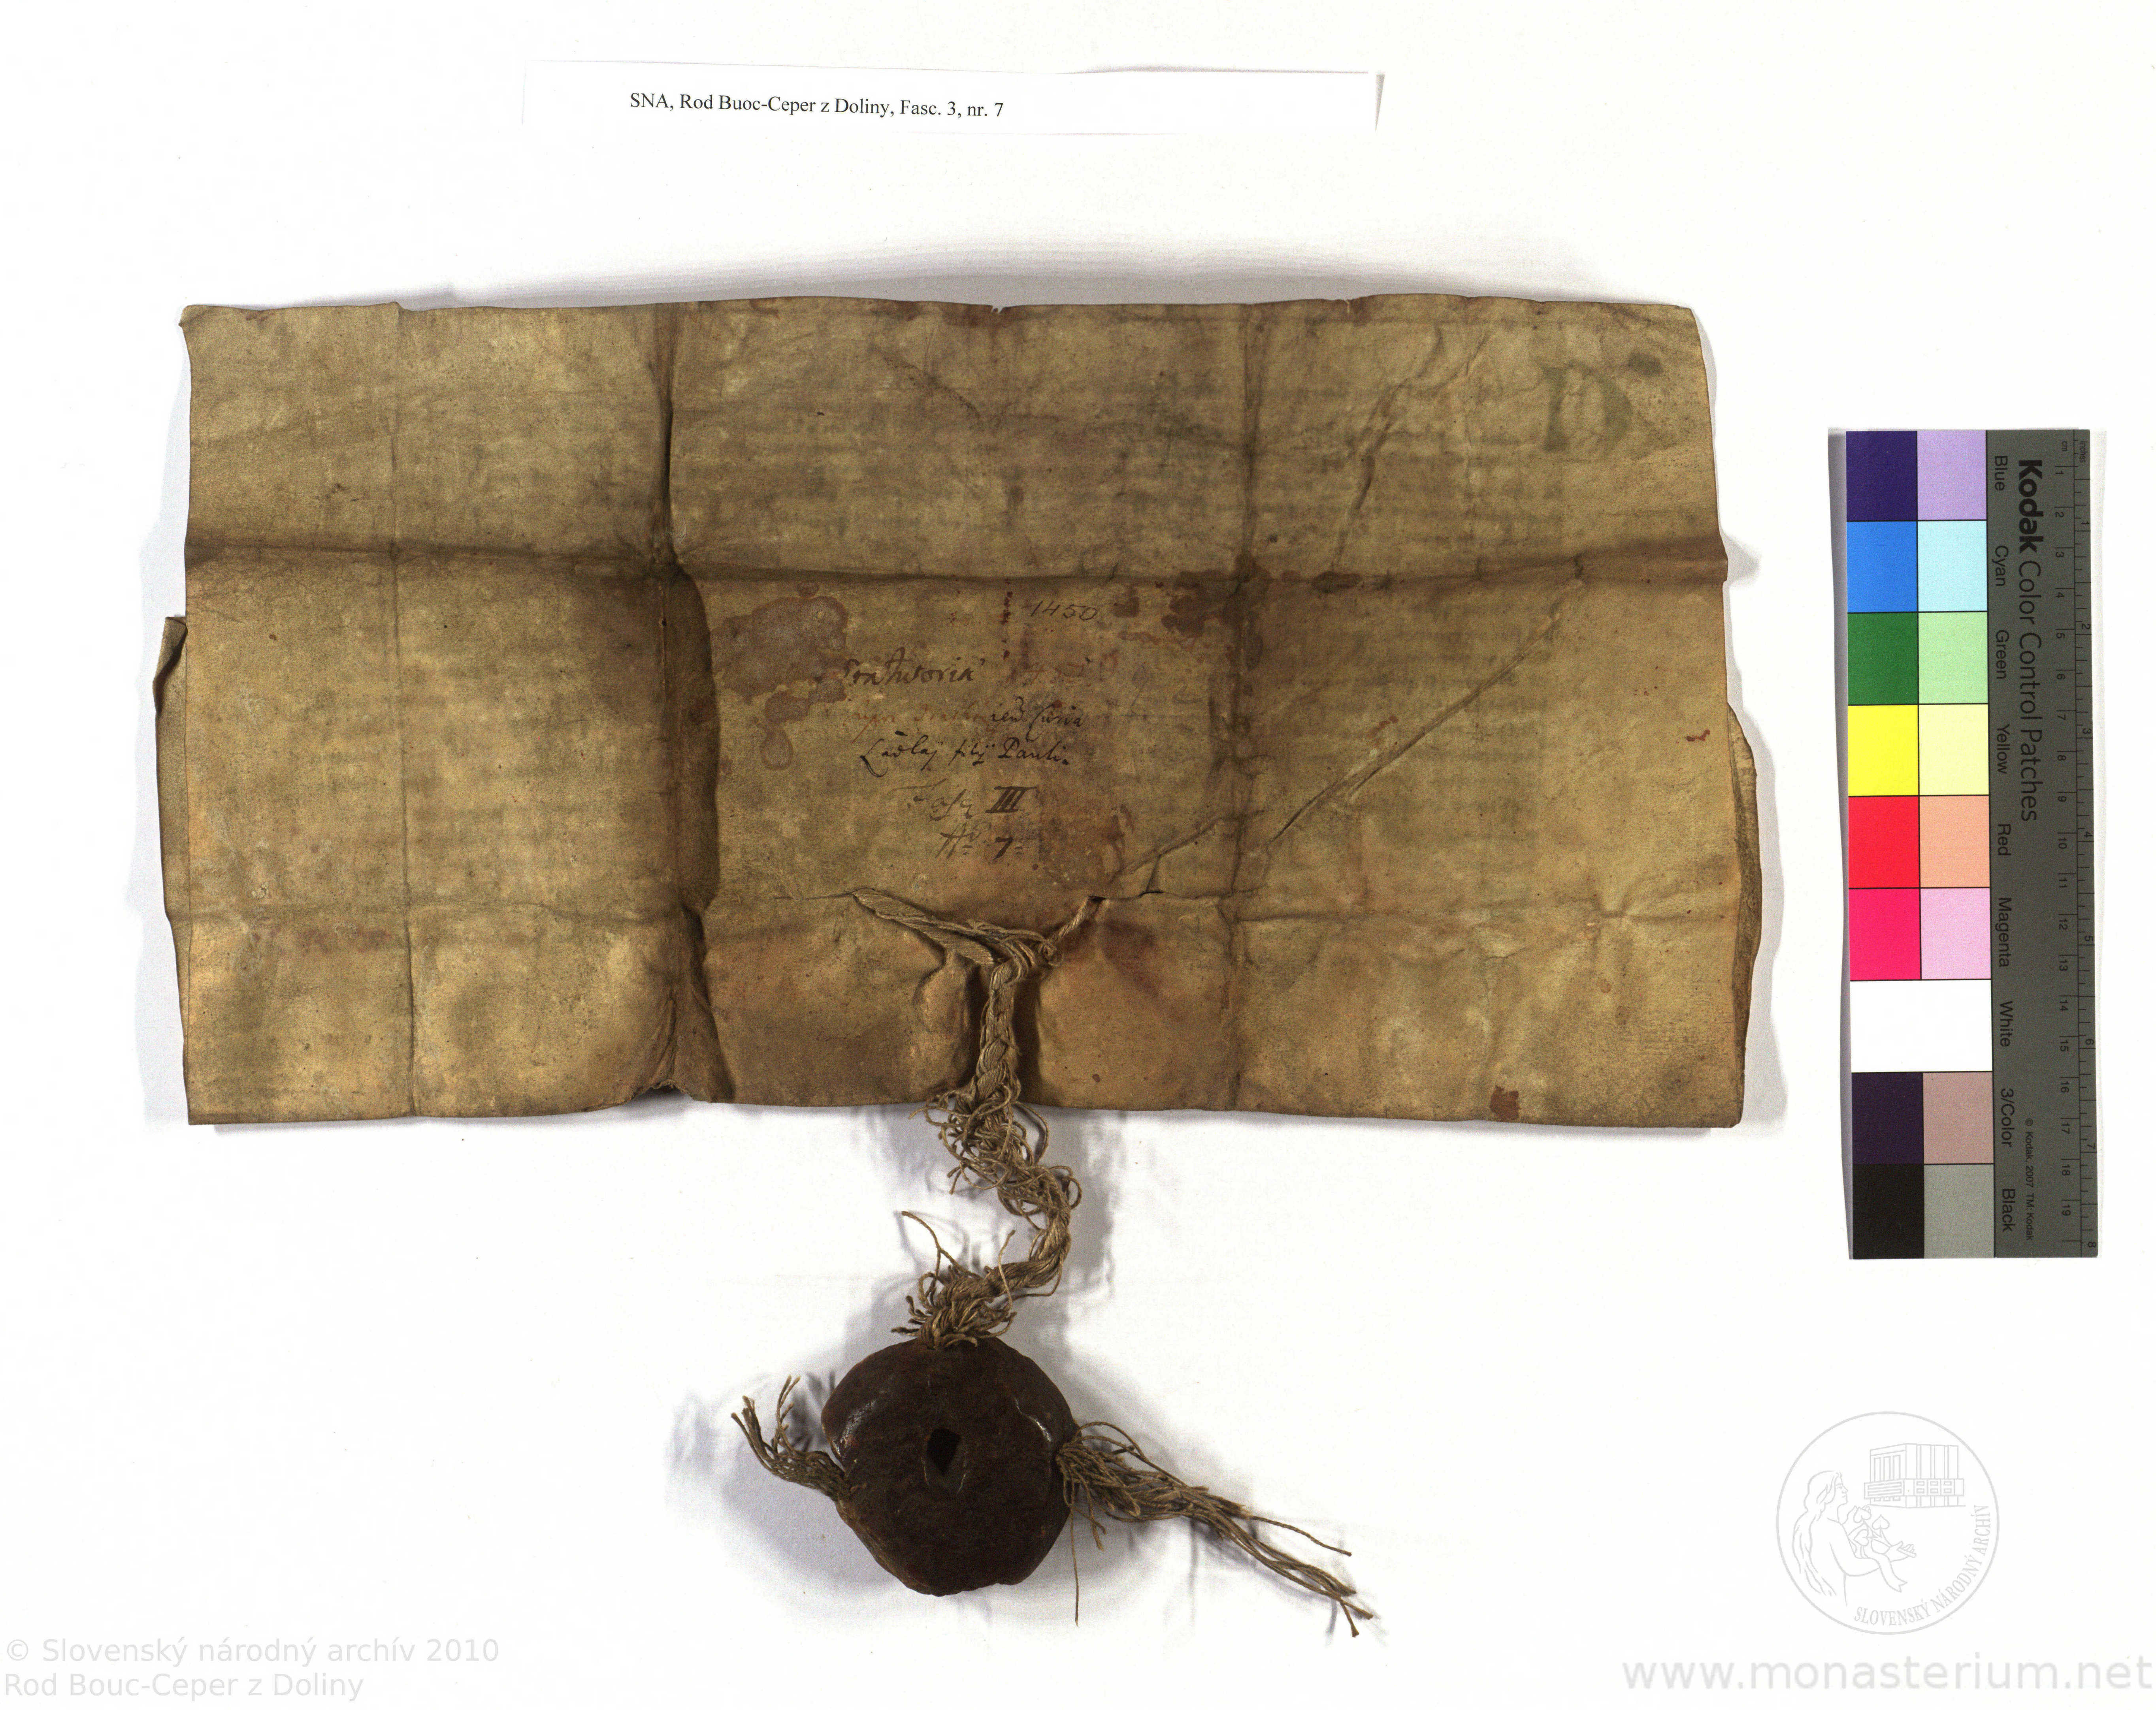 SNA, Rod Buoc-Ceper z Doliny, Fasc. 3, nr. 7
1450
Curia
Ladlaj filij Pauli.
III
No 7
Kodak Color Control Patches
Blue Cyan Green Yellow Red Magenta White 3/Color Black
© Kodak, 2007 TM: Kodak
cm 1 2 3 4 5 6 7 8 9 10 11 12 13 14 15 16 17 18 19
inches 1 2 3 4 5 6 7 8
SLOVENSKÝ NÁRODNÝ ARCHÍV
© Slovenský národný archív 2010
Rod Bouc-Ceper z Doliny
www.monasterium.net